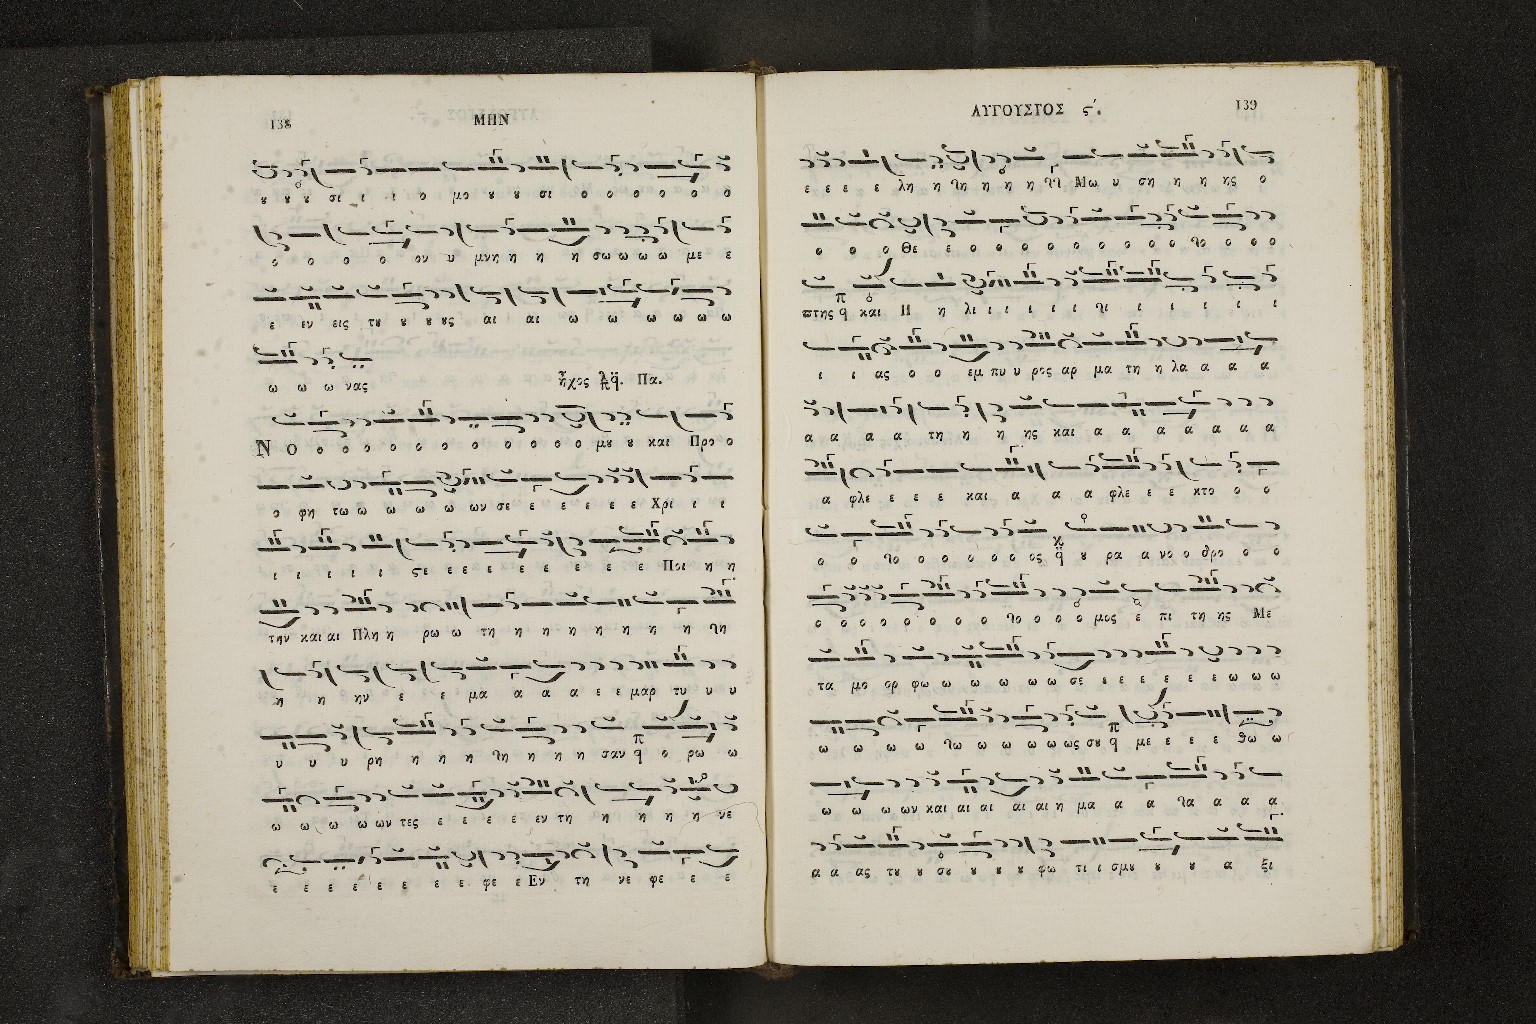 138
ΜΗΝ
ȣ ȣ ȣ σι ι ι ο μο ȣ ȣ σι ο ο ο ο ο ο
ο ο ο ο ον υ μνη η η η σω ω ω ω με ε
ε εν εις τȣ ȣ ȣ ȣς αι αι ω ω ω ω ω ω
ω ω ω νας ἦχος Πα.
Ν Ο ο ο ο ο ο ο ο ο ο ο μȣ ȣ και Προ ο
ο φη τω ω ω ω ω ω ων σε ε ε ε ε ε Χρι ι ι
ι ι ι ι ι ϛε ε ε ε ε ε ε ε ε Ποι η η
την και αι Πλη η ρω ω τη η η η η η η η η τη
η η ην ε ε μα α α α ε ε μαρ τυ υ υ
υ υ υ ρη η η η τη η η η σαν ο ρω ω
ω ω ω ω ων τες ε ε ε ε εν τη η η η η νε
ε ε ε ε ε ε ε ε φε ε Εν τη νε φε ε ε
ΑΥΓΟΥΣΤΟΣ ϛ΄.
139
ε ε ε ε λη η τη η η η Μω υ ση η η ης ο
ο ο ο Θε ε ο ο ο ο ο ο ο ο ο το ο ο ο
πτης και Η η λι ι ι ι ι ι τι ι ι ι ι ι ι
ι ι ας ο ο εμ πυ υ ρος αρ μα τη η λα α α α
α α α α τη η η ης και α α α α α α α
α φλε ε ε ε και α α α φλε ε ε κτο ο ο
ο ο το ο ο ο ο ο ος ȣ ρα α νο ο δρο ο ο
ο ο ο ο ο ο ο ο το ο ο ο μος ε πι τη ης Με
τα μο ορ φω ω ω ω ω ω σε ε ε ε ε ε ε ω ω ω
ω ω ω ω τω ω ω ω ω ως σȣ με ε ε ε θω ω
ω ω ω ων και αι αι αι αι η μα α α τα α α α
α α ας τȣ ȣ σȣ ȣ ȣ ȣ φω τι ι σμȣ ȣ ȣ ȣ α ξι